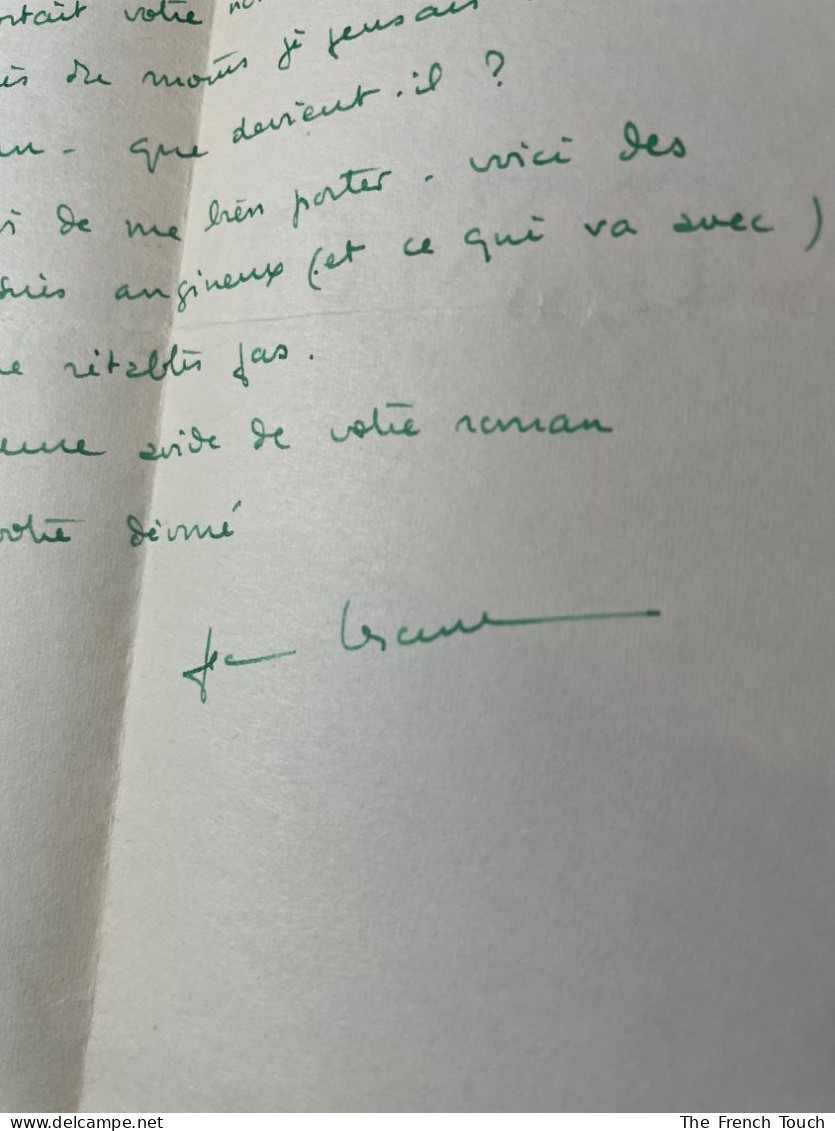 ortait votre
du moins je pensais
que devient-il ?
de me bien porter. voici des
suis angineux (et ce qui va avec)
rétablis pas.
avide de votre roman
votre dévoué
Jean
www.delcampe.net The French Touch